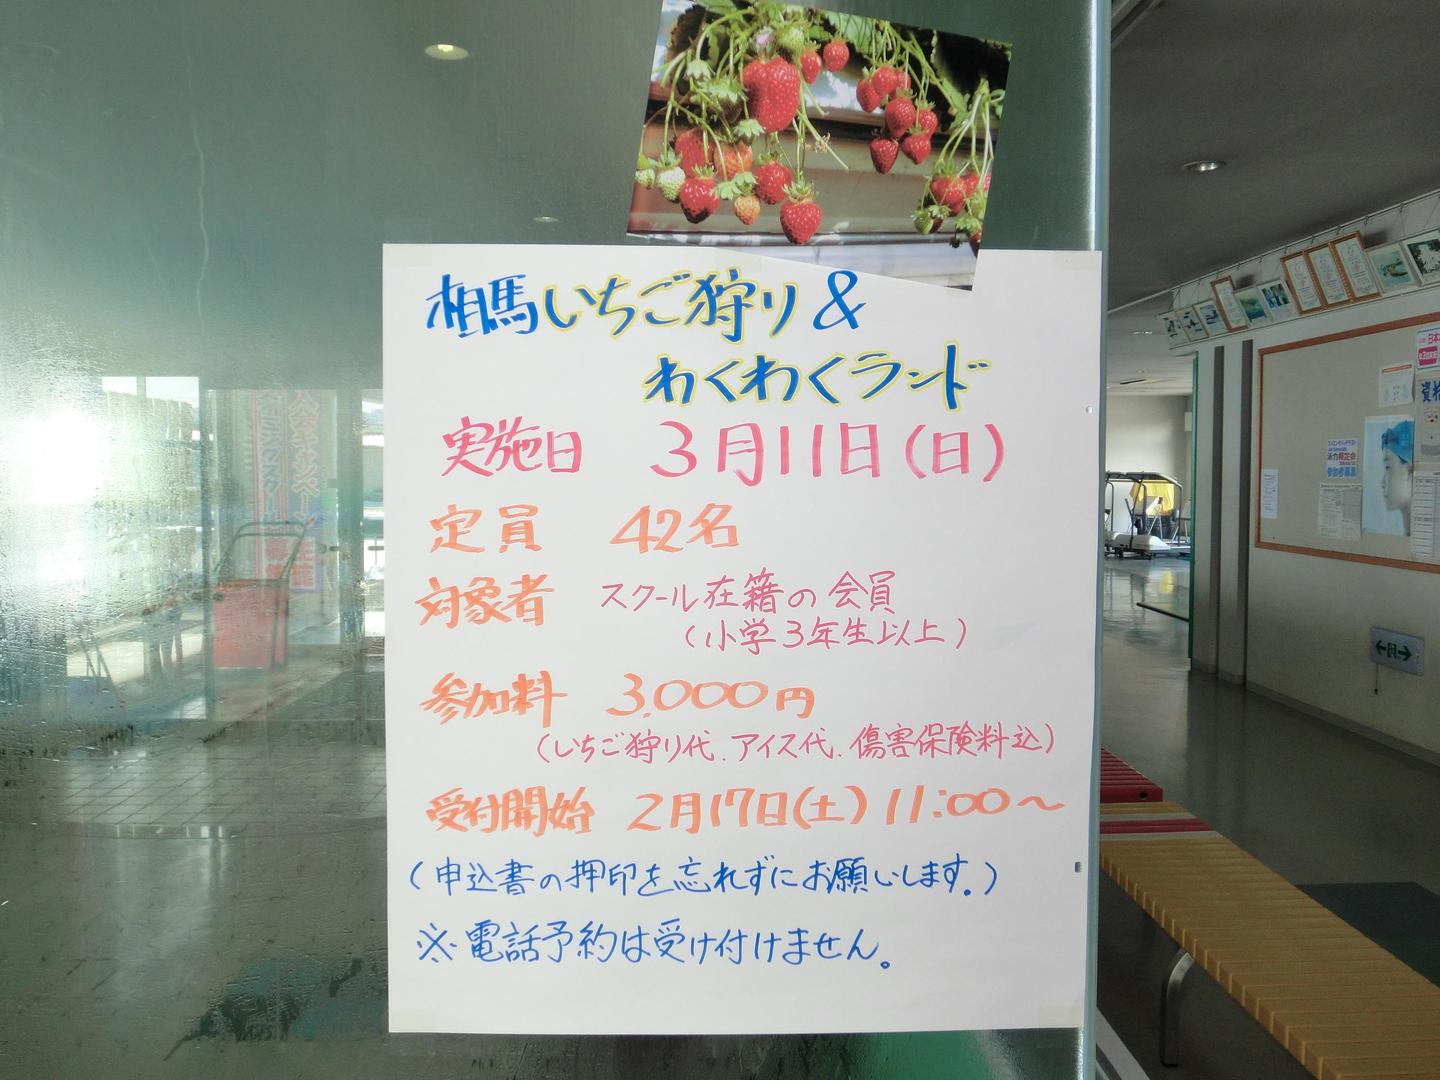 相馬いちご狩り&
わくわくランド
実施日 3月11日(日)
定員 42名
対象者 スクール在籍の会員
(小学3年生以上)
参加料 3,000円
(いちご狩り代、アイス代、傷害保険料込)
受付開始 2月17日(土) 11:00~
(申込書の押印を忘れずにお願いします。)
※電話予約は受け付けません。